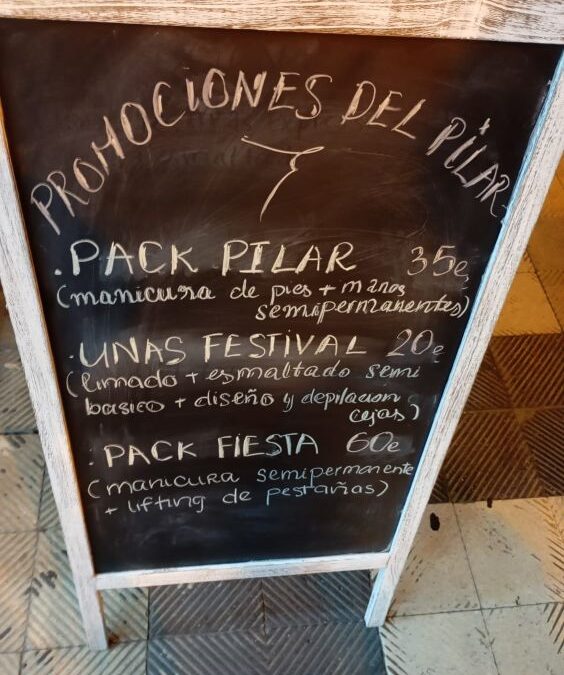 PROMOCIONES DEL PILAR
.PACK PILAR 35€
(manicura de pies + manos
semipermanentes)
.UNAS FESTIVAL 20€
(limado + esmaltado semi
basico + diseño y depilacion
cejas)
.PACK FIESTA 60€
(manicura semipermanente
+ lifting de pestañas)